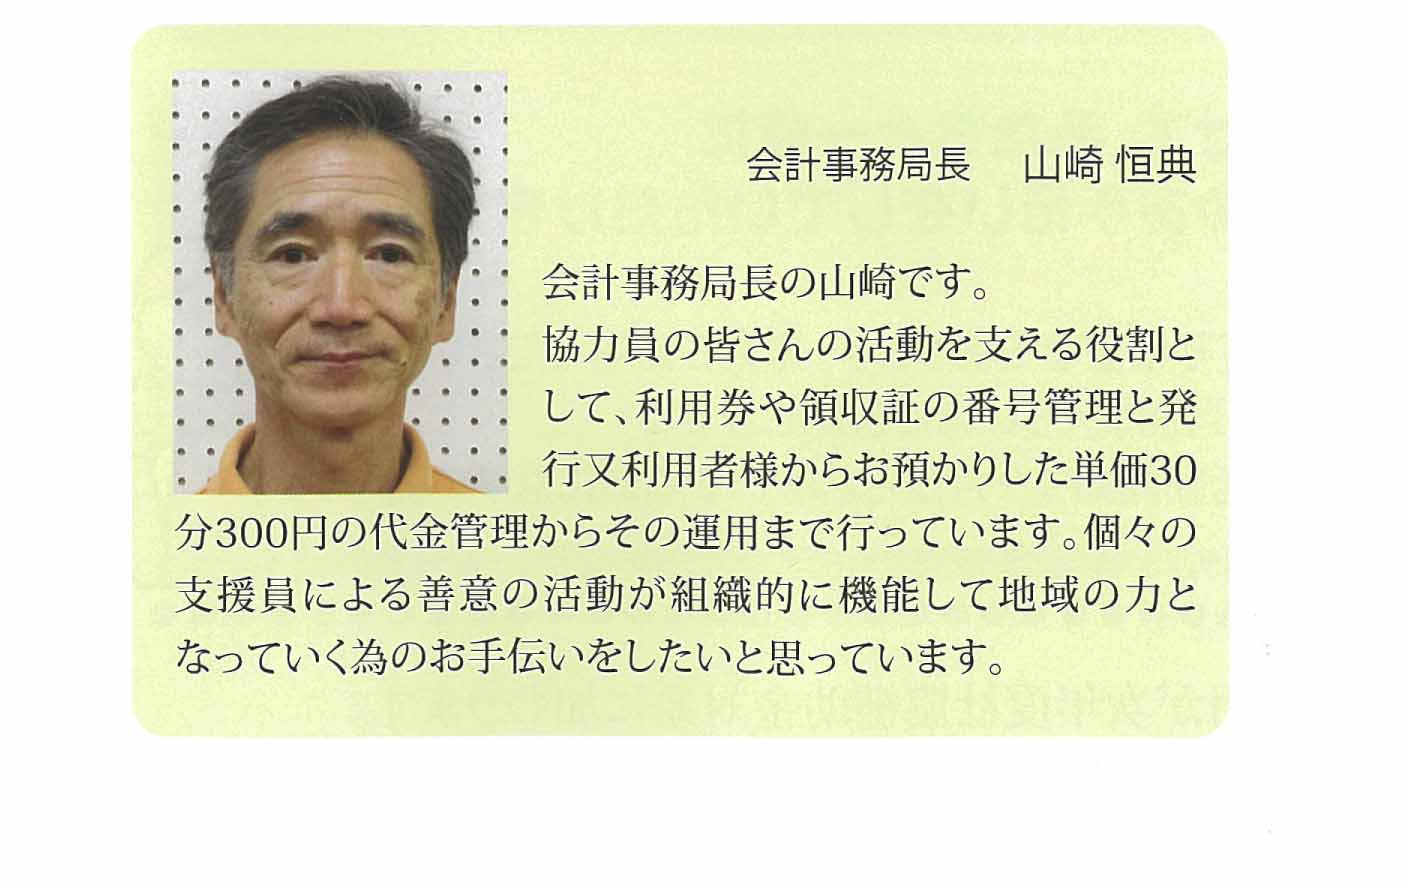 会計事務局長　山崎 恒典
会計事務局長の山崎です。
協力員の皆さんの活動を支える役割と
して、利用券や領収証の番号管理と発
行又利用者様からお預かりした単価30
分300円の代金管理からその運用まで行っています。個々の
支援員による善意の活動が組織的に機能して地域の力と
なっていく為のお手伝いをしたいと思っています。